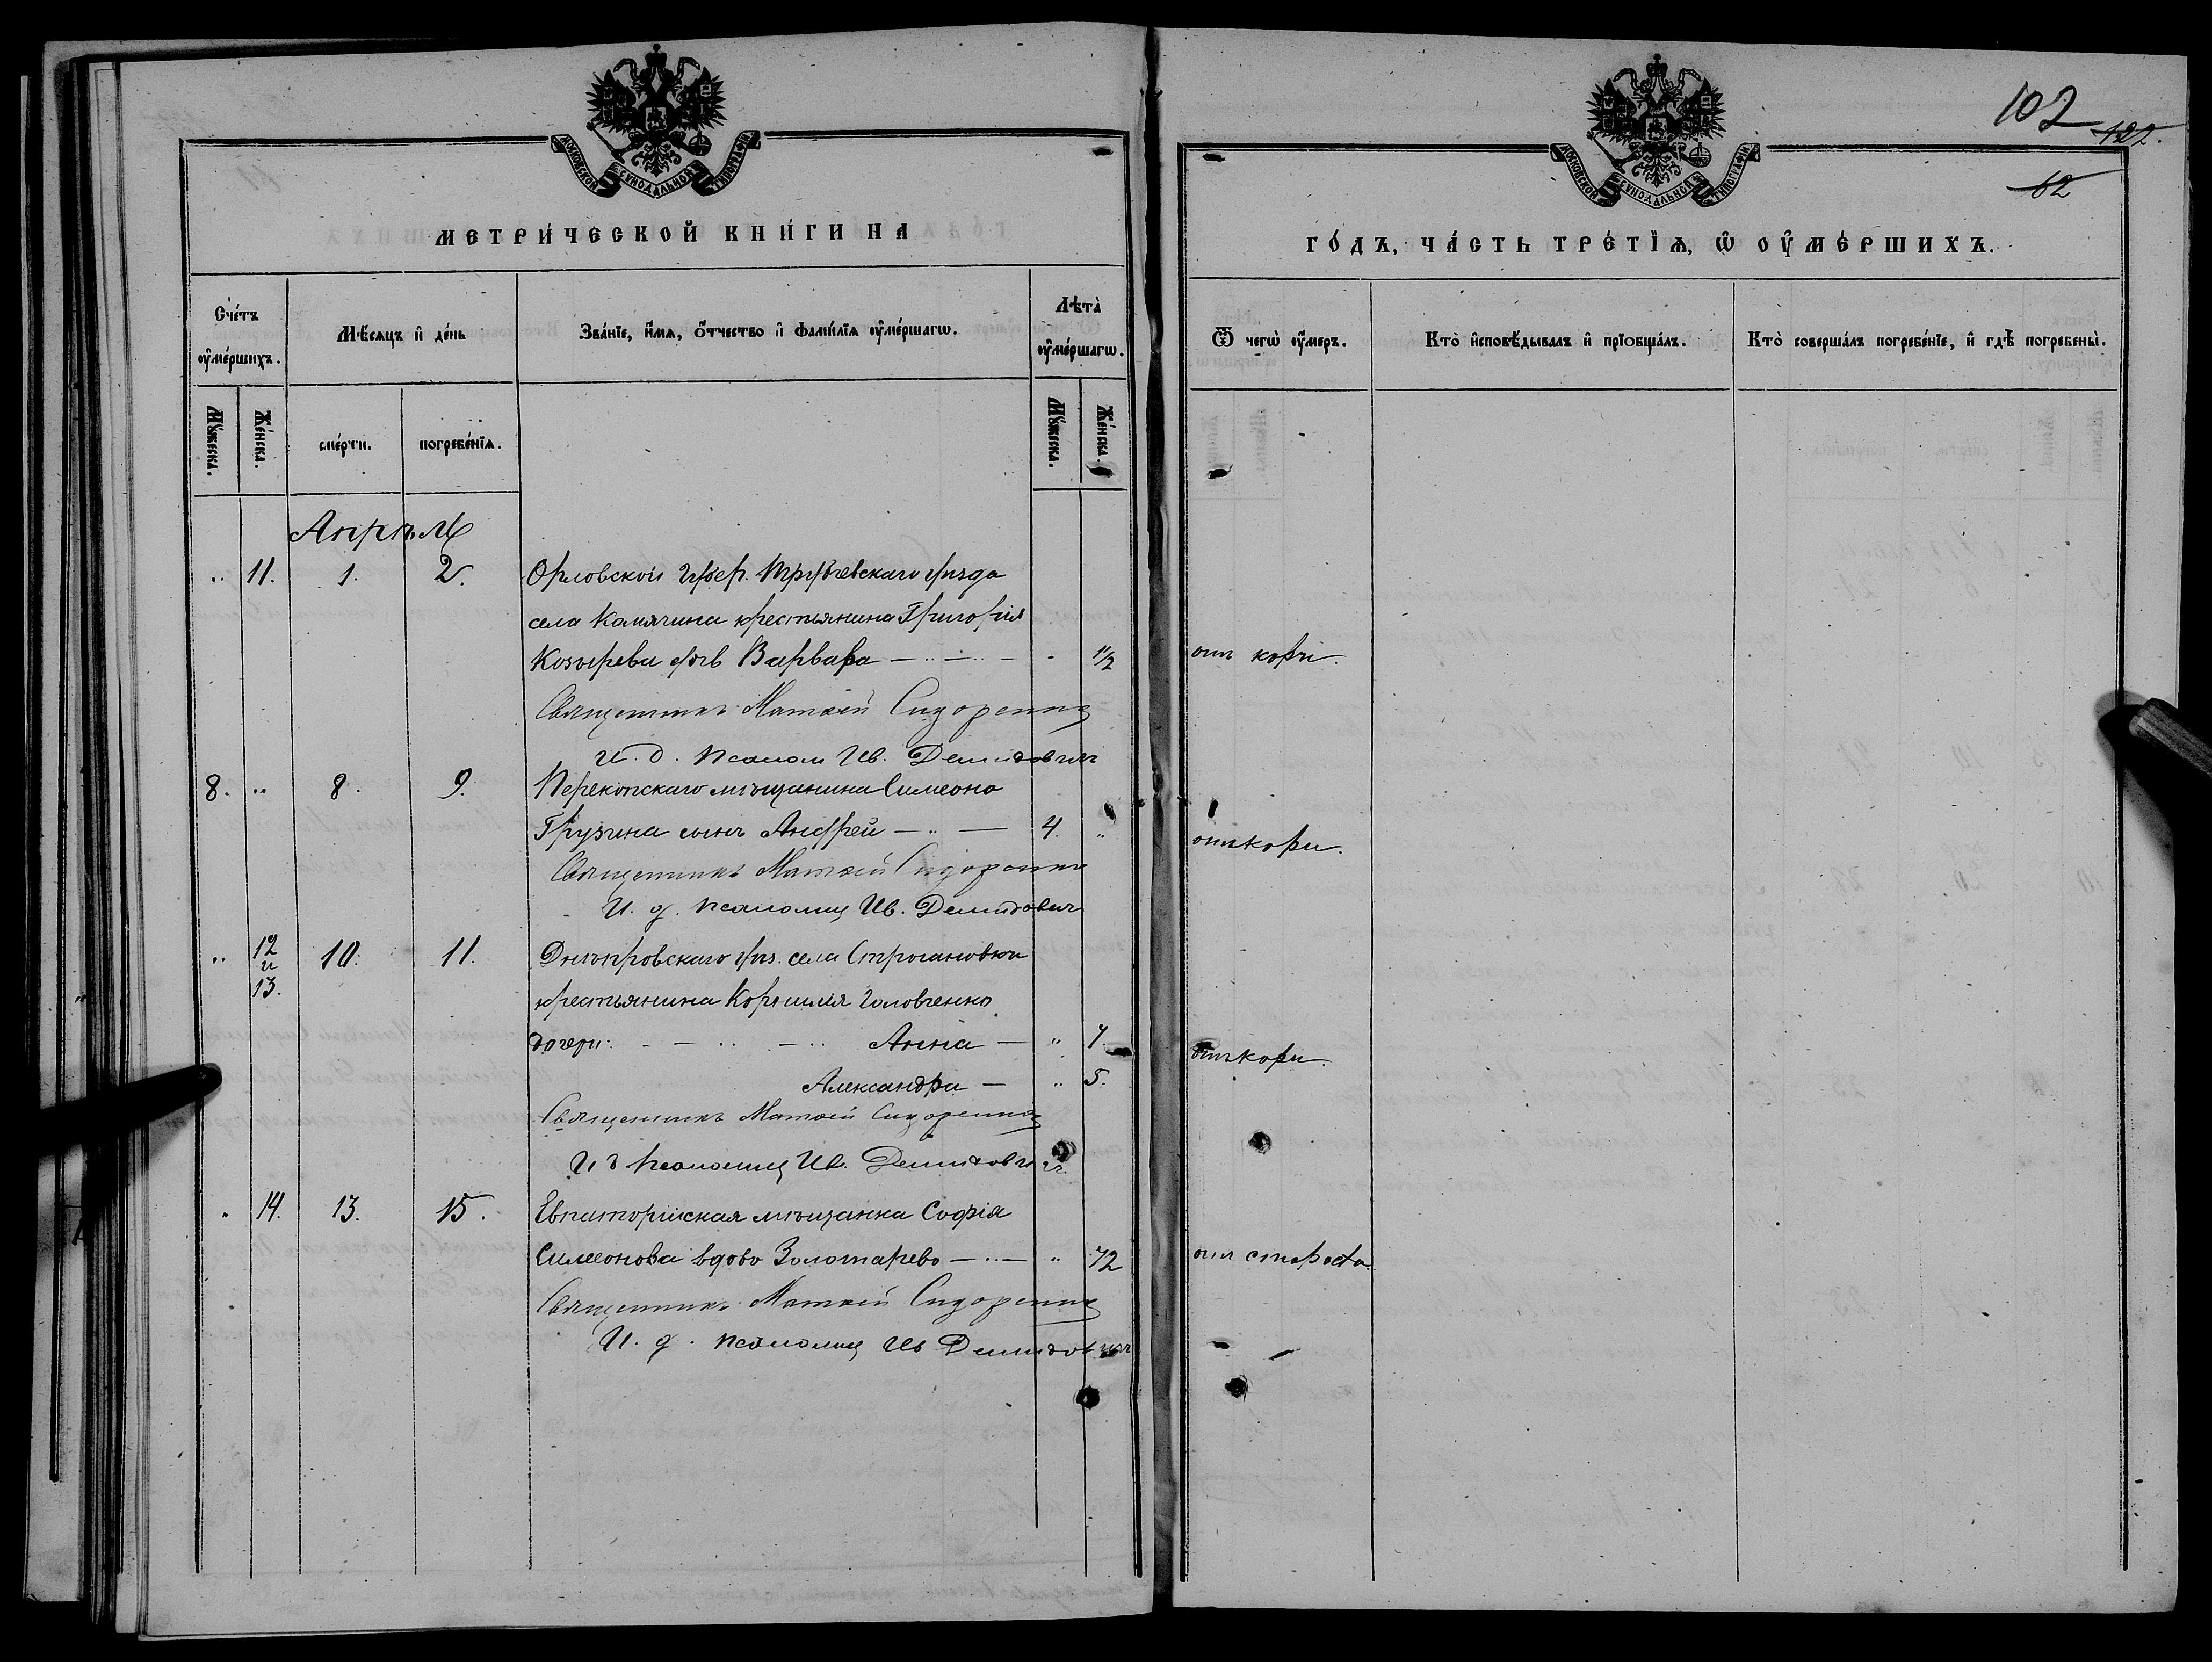 МОСКОВСКОЙ СѴНОДАЛЬНОЙ ТИПОГРАФІИ
МЕТРИ́ЧЕСКОЙ КНИ́ГИ НА
Сче́тъ ᲂу҆ме́ршихъ.
Мѣ́сяцъ и҆ де́нь
Зва́нїе, и҆́мѧ, ѻ҆́тчество и҆ фами́лїѧ ᲂу҆ме́ршагѡ.
Лѣта̀ ᲂу҆ме́ршагѡ.
Мꙋ́жеска.
Же́нска.
сме́рти.
погребе́нїѧ.
Мꙋ́жеска.
Же́нска.
Апрѣль
.. 11. 1. 2. Орловской губер. Трубчевскаго уѣзда
села крестьянина Григорія
Козырева дочь Варвара — .. — .. — 1½
Священникъ Матвей Сидоренко
И. д. псалом Ив. Демидовичъ
8. .. 8. 9. Перекопскаго мѣщанина Симеона
Грузина сынъ Андрей — .. — 4. "
Священникъ Матвей Сидоренко
И. д. псаломщ Ив. Демидович
.. 12 и 13. 10. 11. Днѣпровскаго уѣз. села Строгановки
крестьянина Корнилія Головченко
дочери: - — .. — .. Анна — " 7.
Александра — .. 5.
Священникъ Матвей Сидоренко
И д псаломщ Ив. Демидовичъ
" 14. 13. 15. Евпаторійская мѣщанка Софія
Симеонова вдова Золотарева — .. — .. 72
Священникъ Матвей Сидоренко
И. д. псаломщ Ив Демидовичъ
102
122.
62
МОСКОВСКОЙ СѴНОДАЛЬНОЙ ТИПОГРАФІИ
ГО́ДЪ, ЧА́СТЬ ТРЕ́ТЇѦ, Ѡ҆ ОУ҆МЕ́РШИХЪ.
Ѿ чегѡ̀ ᲂу҆́меръ.
Кто̀ и҆сповѣ́дывалъ и҆ прїобща́лъ.
Кто̀ соверша́лъ погребе́нїе, и҆ гдѣ̀ погребены̀.
отъ кори.
отъ кори.
отъ кори.
отъ староста.